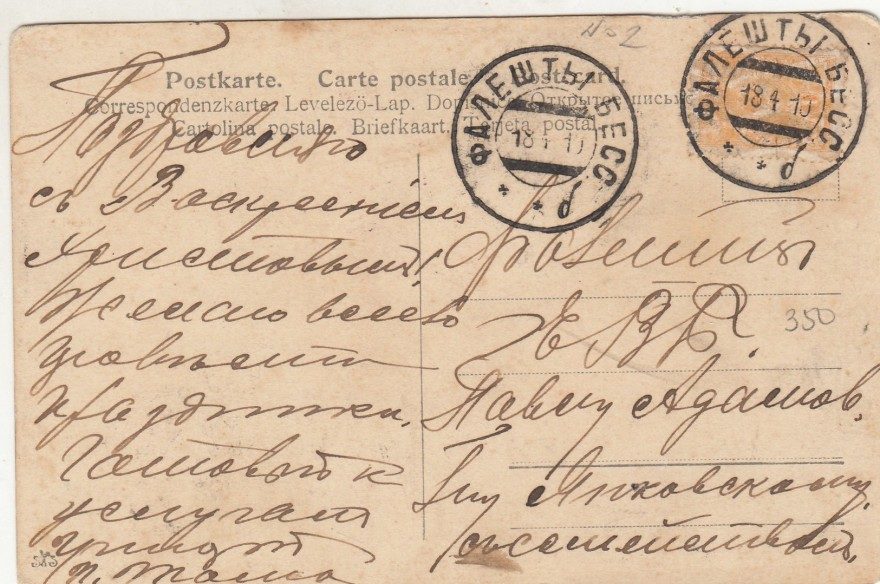 No 2
Postkarte. Carte postale. Postcard.
Correspondenzkarte. Levelező-Lap. Открытое письмо
Cartolina postale. Briefkaart. Tarjeta postal.
ФАЛЕШТЫ БЕСС.
18 4 10
б
ФАЛЕШТЫ БЕСС.
18 4 10
б
Поздравляю
съ Воскресеніем
Христовым!
Желаю всего
провести
праздники.
Готовый к
услугам
Фалешты
Е В Б.
350
Павлу Адамов.
Янковскому
съ семейством.